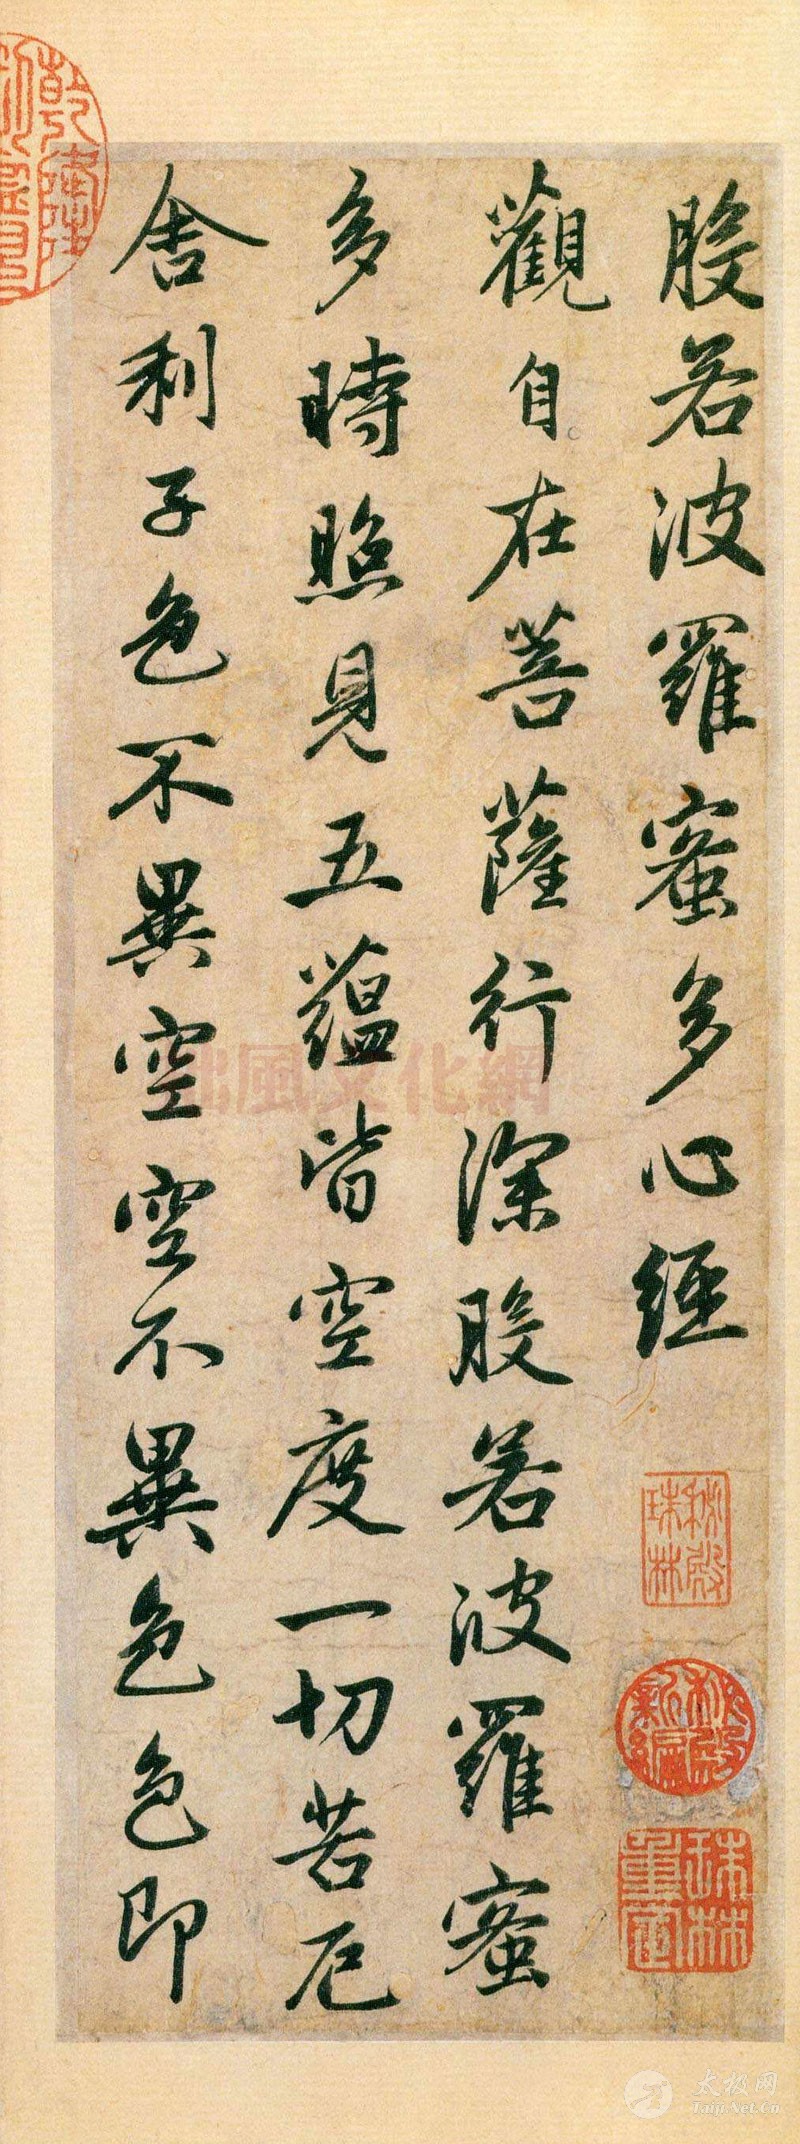 般若波羅蜜多心經
觀自在菩薩行深般若波羅蜜
多時照見五蘊皆空度一切苦厄
舍利子色不異空空不異色色即
秘殿珠林
秘殿新編
珠林重定
乾隆
風文化網
太极网
Taiji.Net.Cn